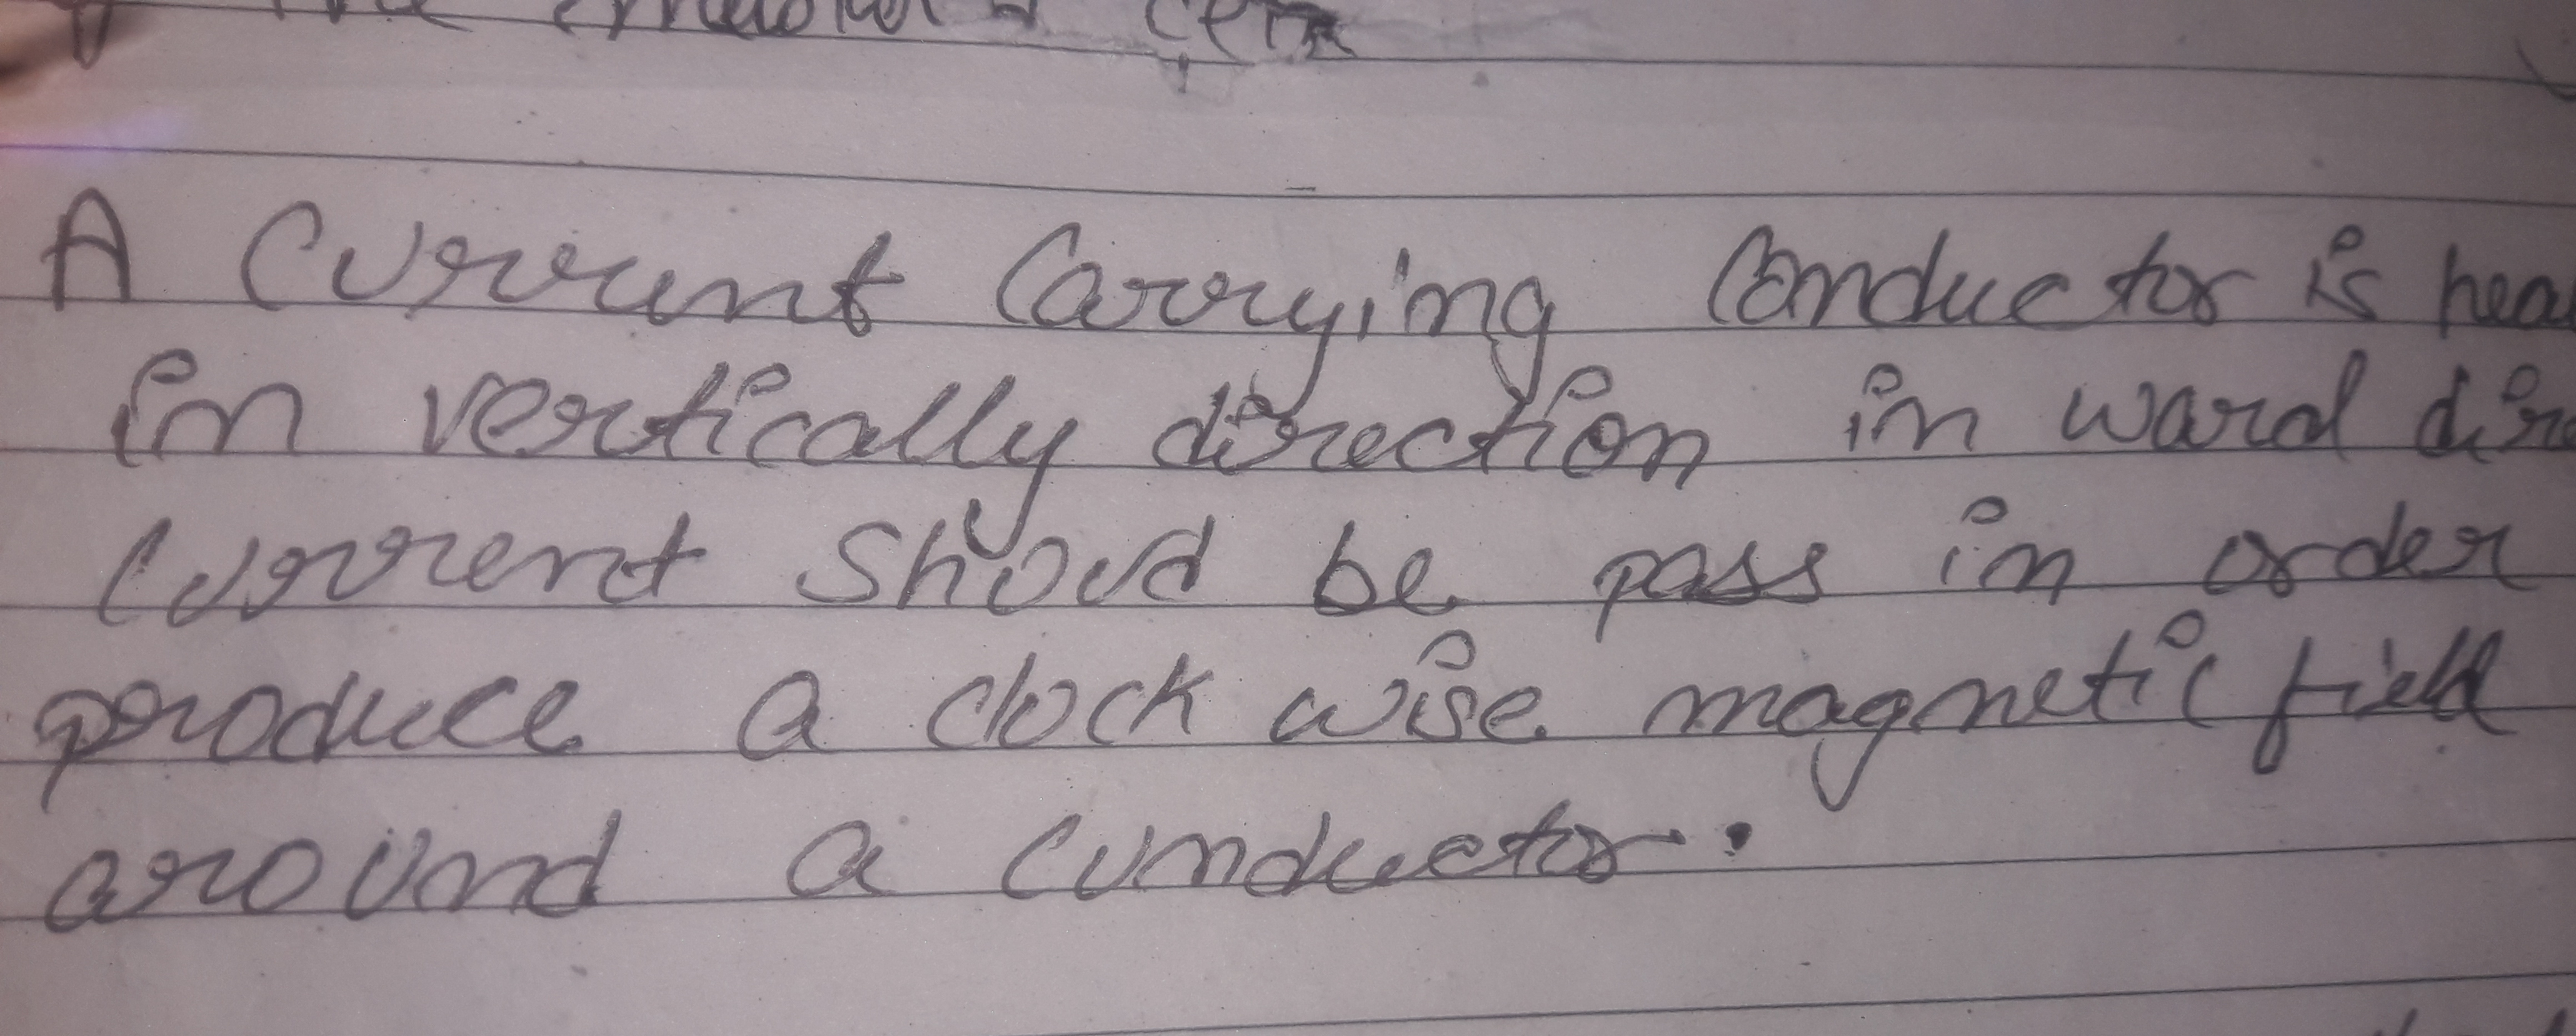 A Current Carrying Conductor is hea
in vertically direction in ward dire
Current Should be pass in order
produce a clock wise magnetic field
around a Cunductor.